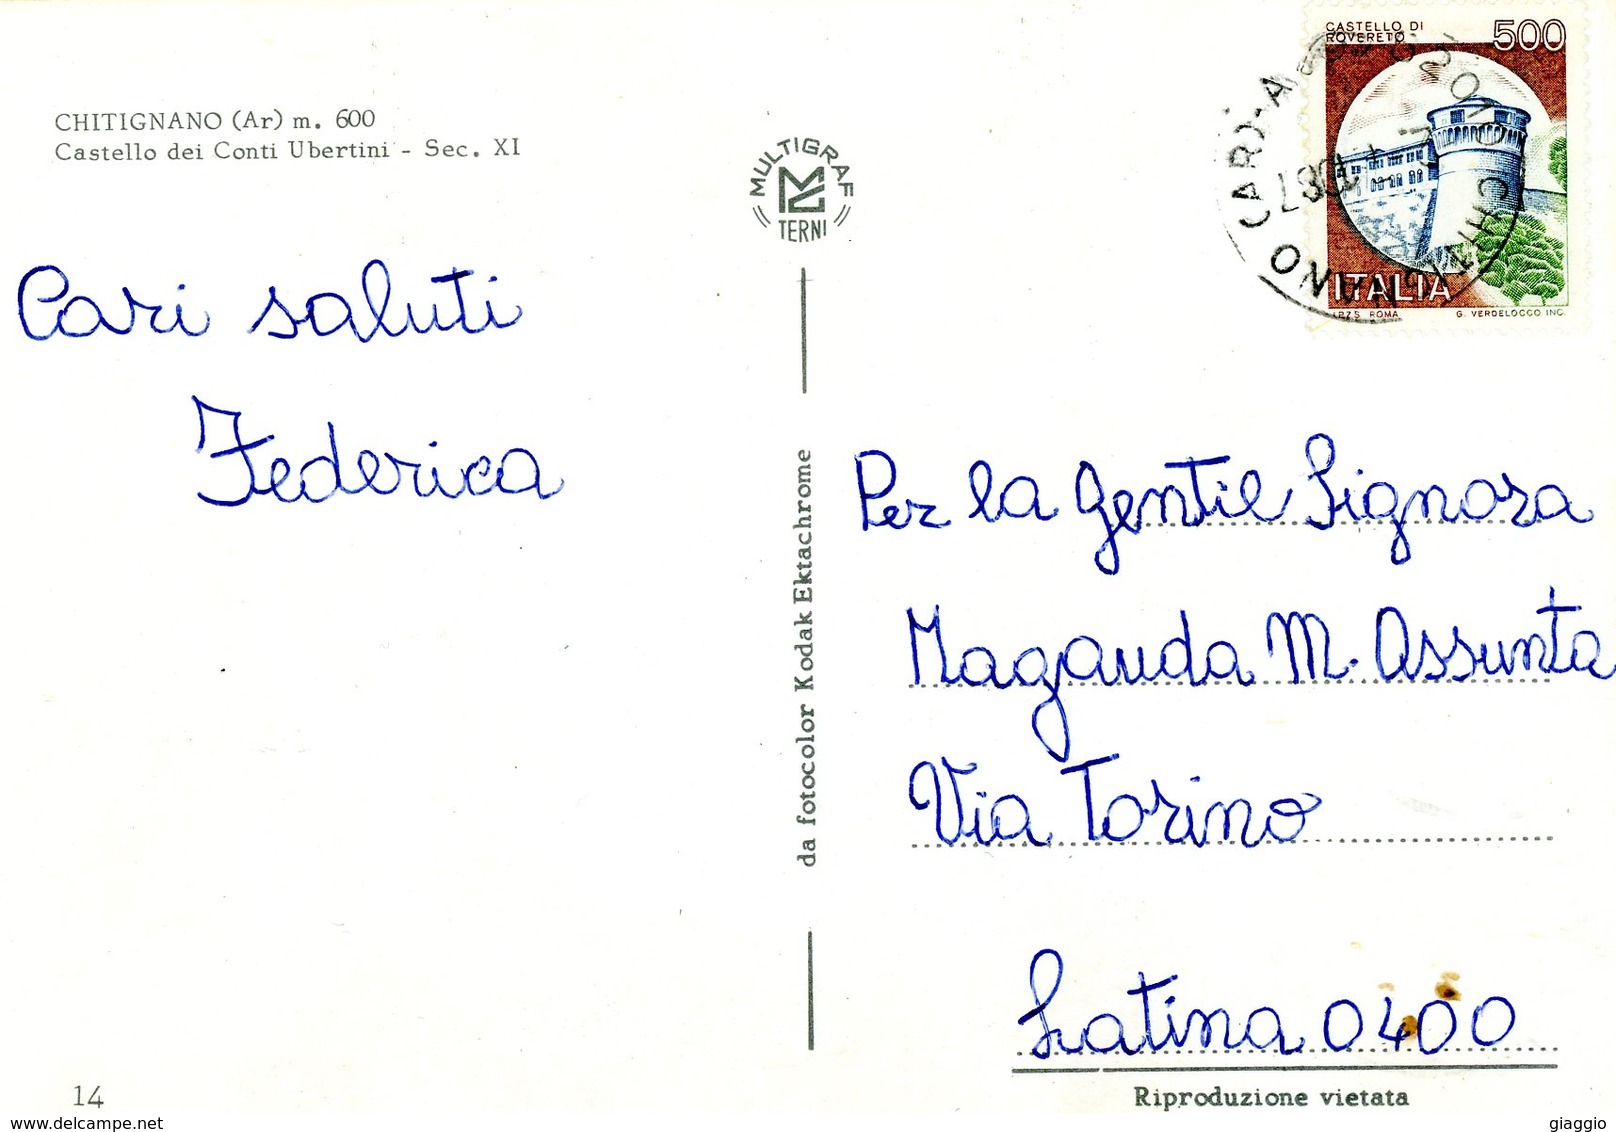 CHITIGNANO (Ar) m. 600
Castello dei Conti Ubertini - Sec. XI
MULTIGRAF
TERNI
CASTELLO DI
ROVERETO
500
ITALIA
I.P.Z.S. ROMA G. VERDELOCCO INC.
52010 CHITIGNANO (AR) - A
1987
Cari saluti
Federica
da fotocolor Kodak Ektachrome
Per la Gentile Signora
Maganuda M. Assunta
Via Torino
Latina 0400
14
Riproduzione vietata
delcampe.net
giaggio